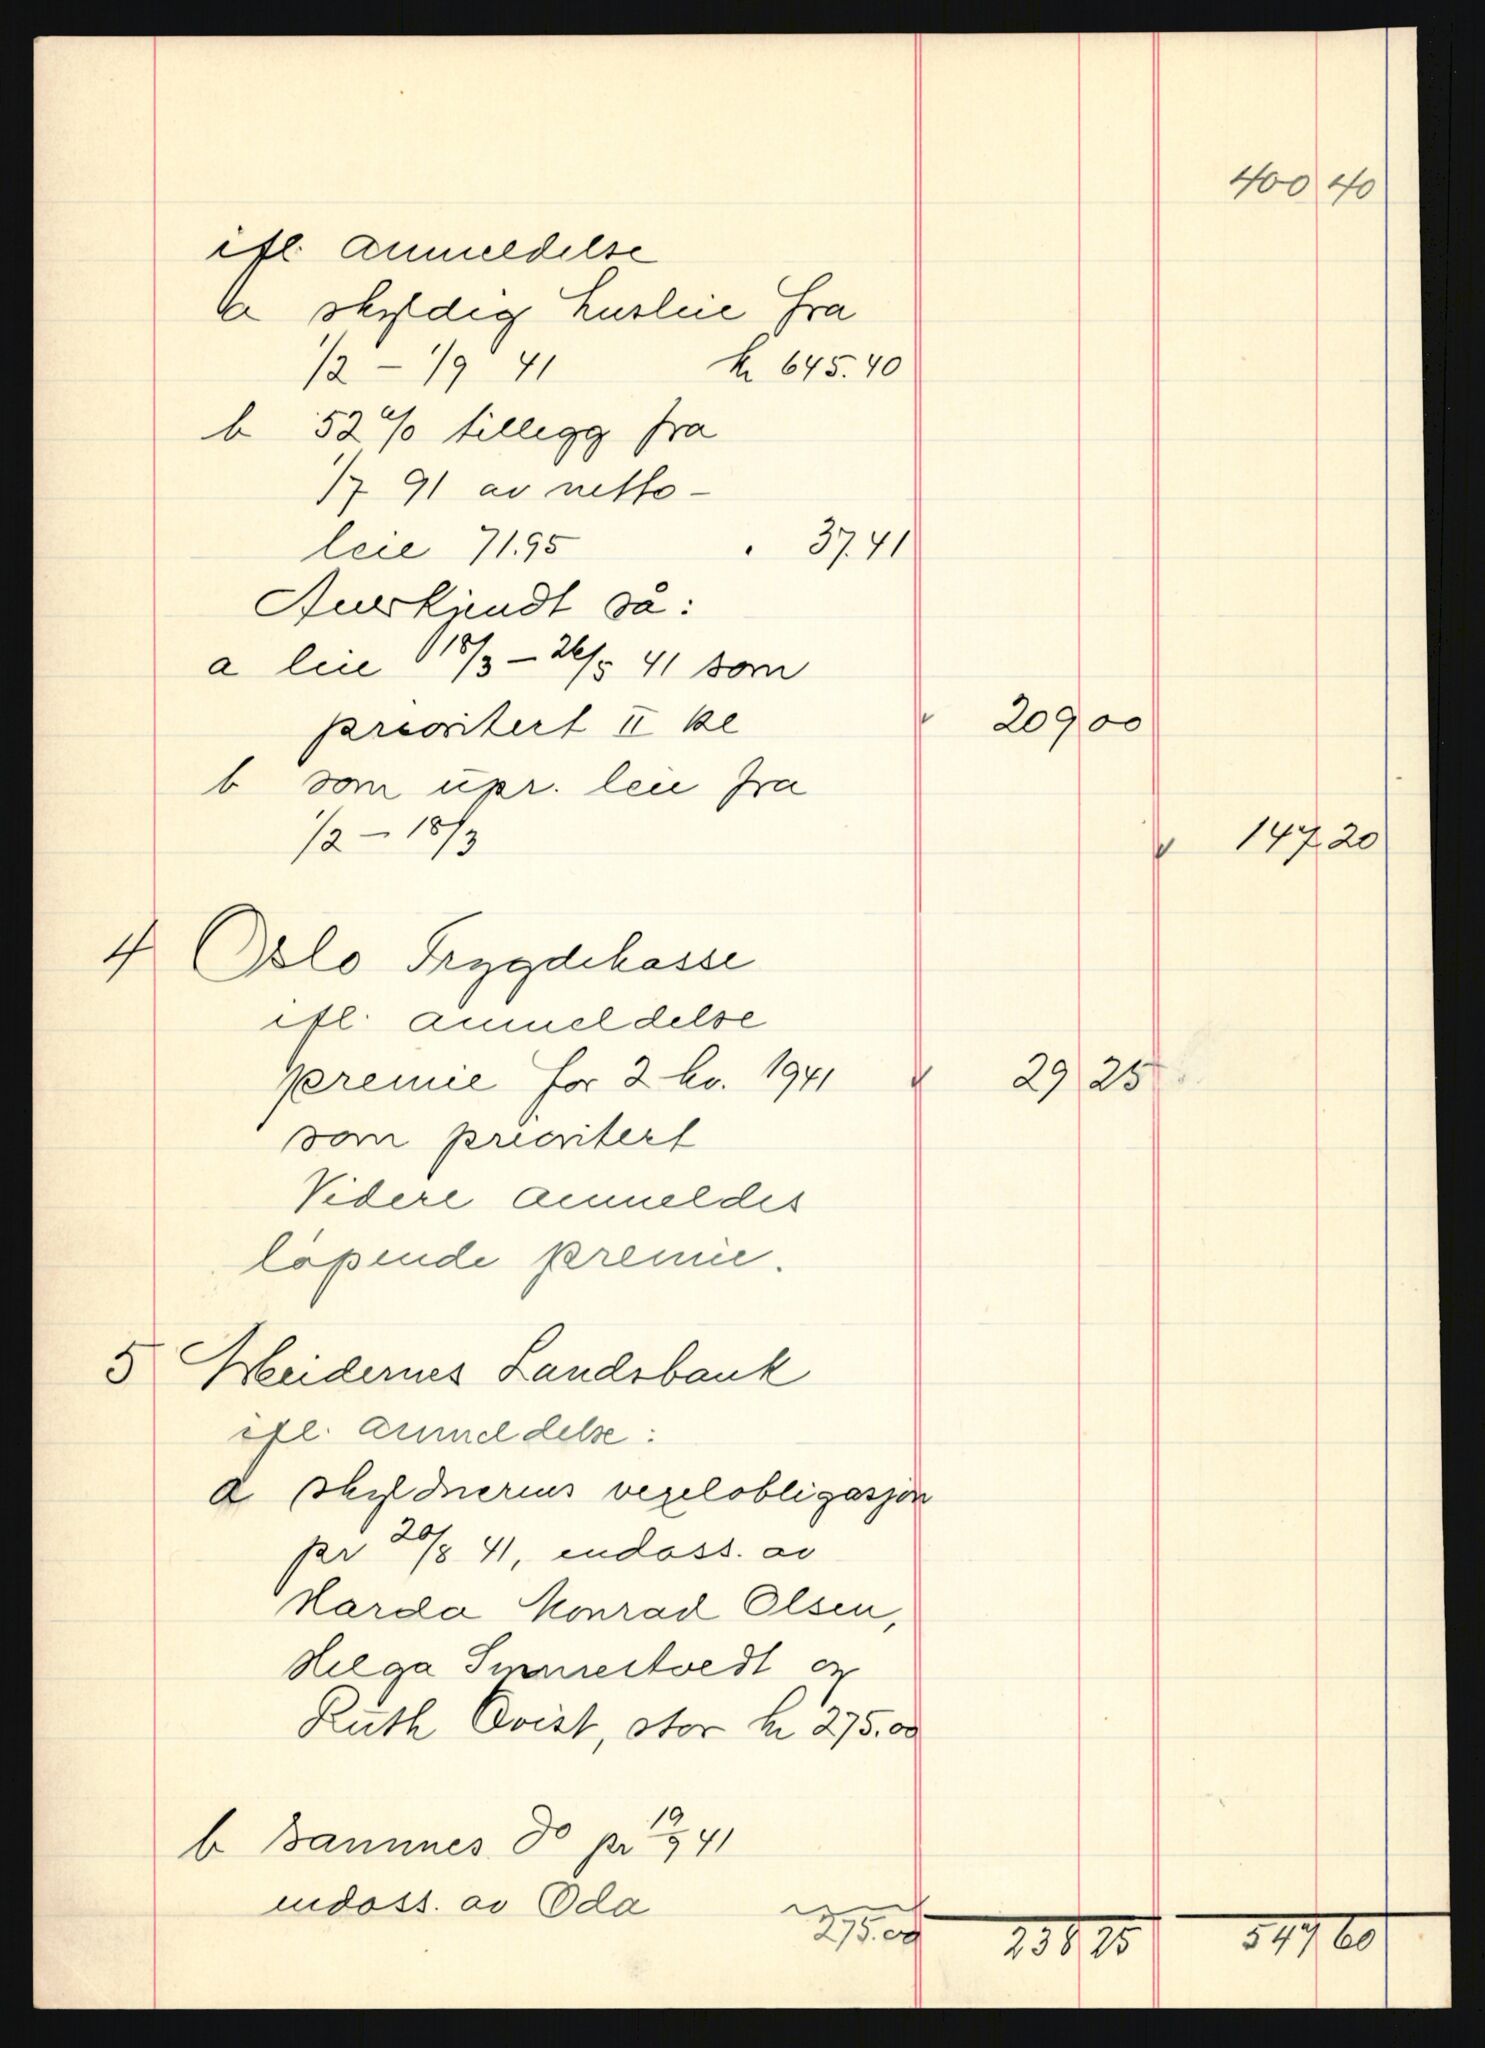 400 40
ifl. anmeldelse
a skyldig husleie fra
1/2 – 1/9 41 kr 645.40
b 52 % tillegg fra
1/7 41 av netto-
leie 71.95 " 37.41
Anerkjendt så:
a leie 18/3 – 26/5 41 som
prioritert II kl 209 00
b som upr. leie fra
1/2 – 18/3 147 20
4 Oslo Trygdekasse
ifl. anmeldelse
premie for 2 kv. 1941 29 25
som prioritert
Videre anmeldes
løpende premie.
5 Arbeidernes Landsbank
ifl. anmeldelse:
a skyldnerens vexelobligasjon
pr 20/8 41, endoss. av
Harda Konrad Olsen,
Helga Simmestvedt og
Ruth Qvist, stor kr 275.00
b Sammes do pr 19/9 41
endoss. av Oda
275.00 238 25 547 60